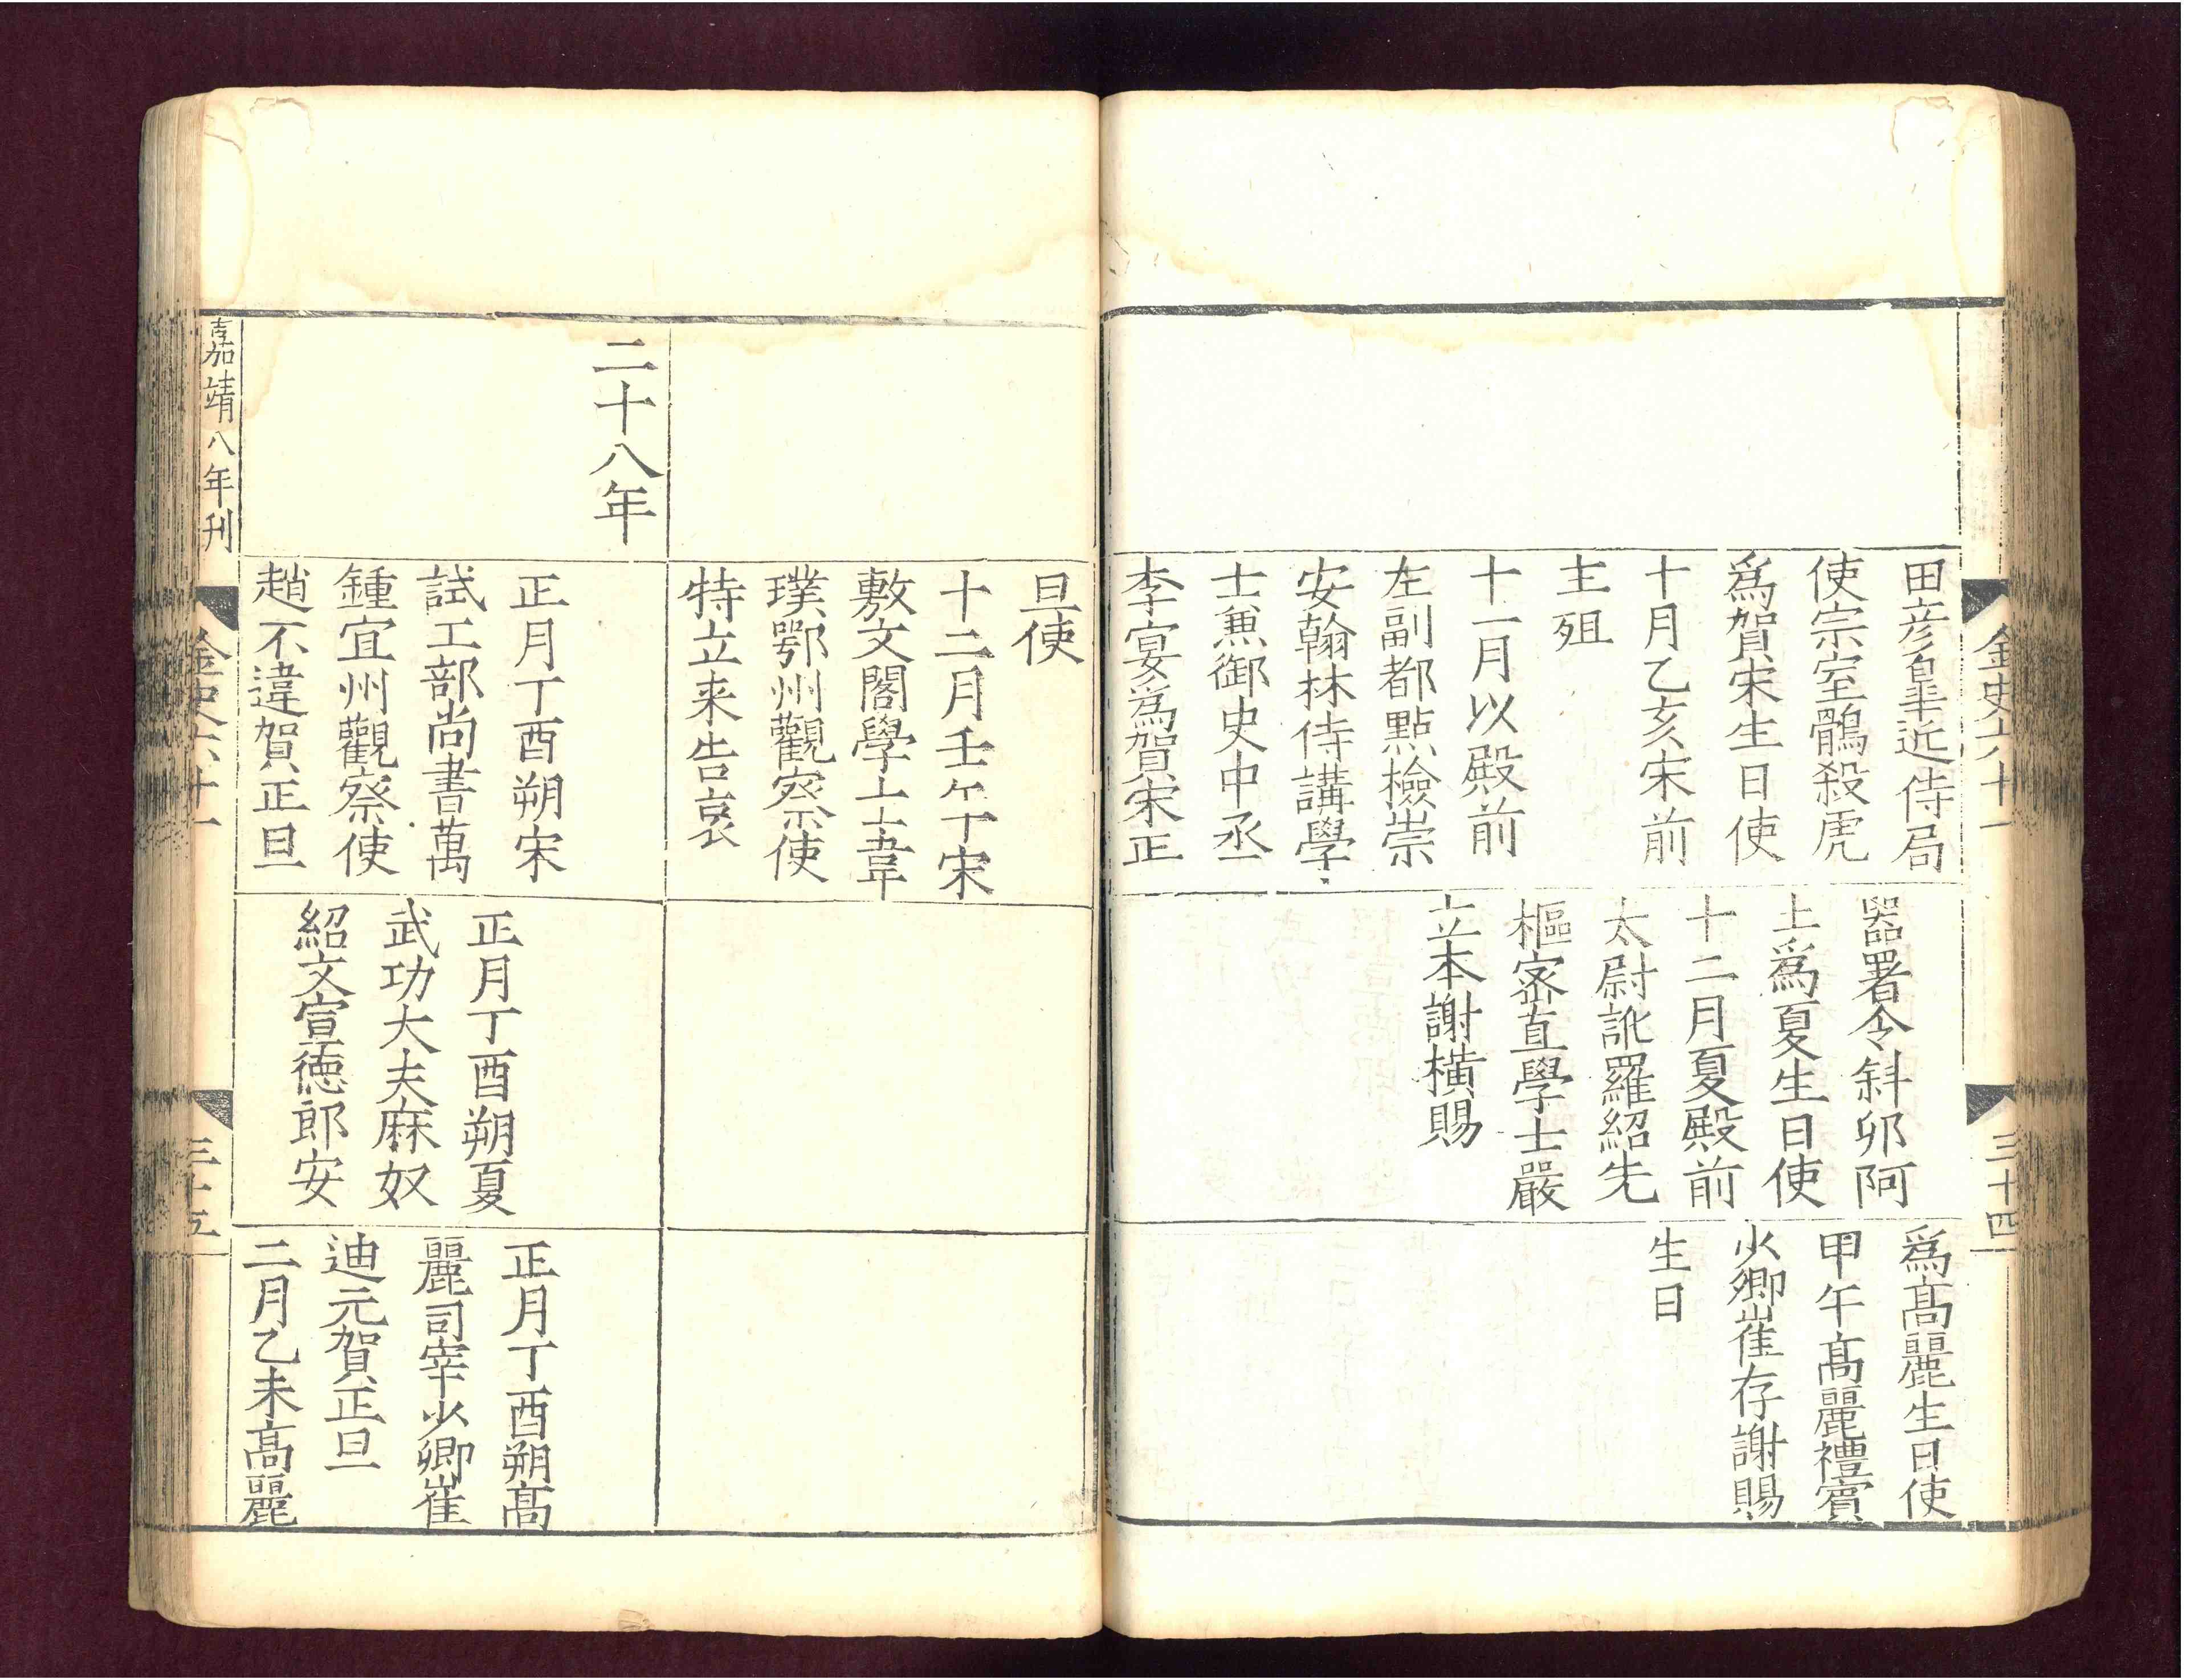 金史六十一
三十四
田彥皐近侍局
使宗室鶻殺虎
爲賀宋生日使
十月乙亥宋前
主殂
十一月以殿前
左副都點檢崇
安翰林侍講學
士兼御史中丞
李宴為賀宋正
器署令斜卯阿
上爲夏生日使
十二月夏殿前
太尉訛羅紹先
樞宻直學士嚴
立本謝橫賜
爲髙麗生日使
甲午髙麗禮賓
少卿崔存謝賜
生日
旦使
十二月壬午宋
敷文閣學士韋
璞鄂州觀察使
特立来告哀
二十八年
正月丁酉朔宋
試工部尚書萬
鍾宜州觀察使
趙不違賀正旦
正月丁酉朔夏
武功大夫麻奴
紹文宣德郎安
正月丁酉朔髙
麗司宰少卿崔
迪元賀正旦
二月乙未髙麗
嘉靖八年刊
金史六十一
三十五